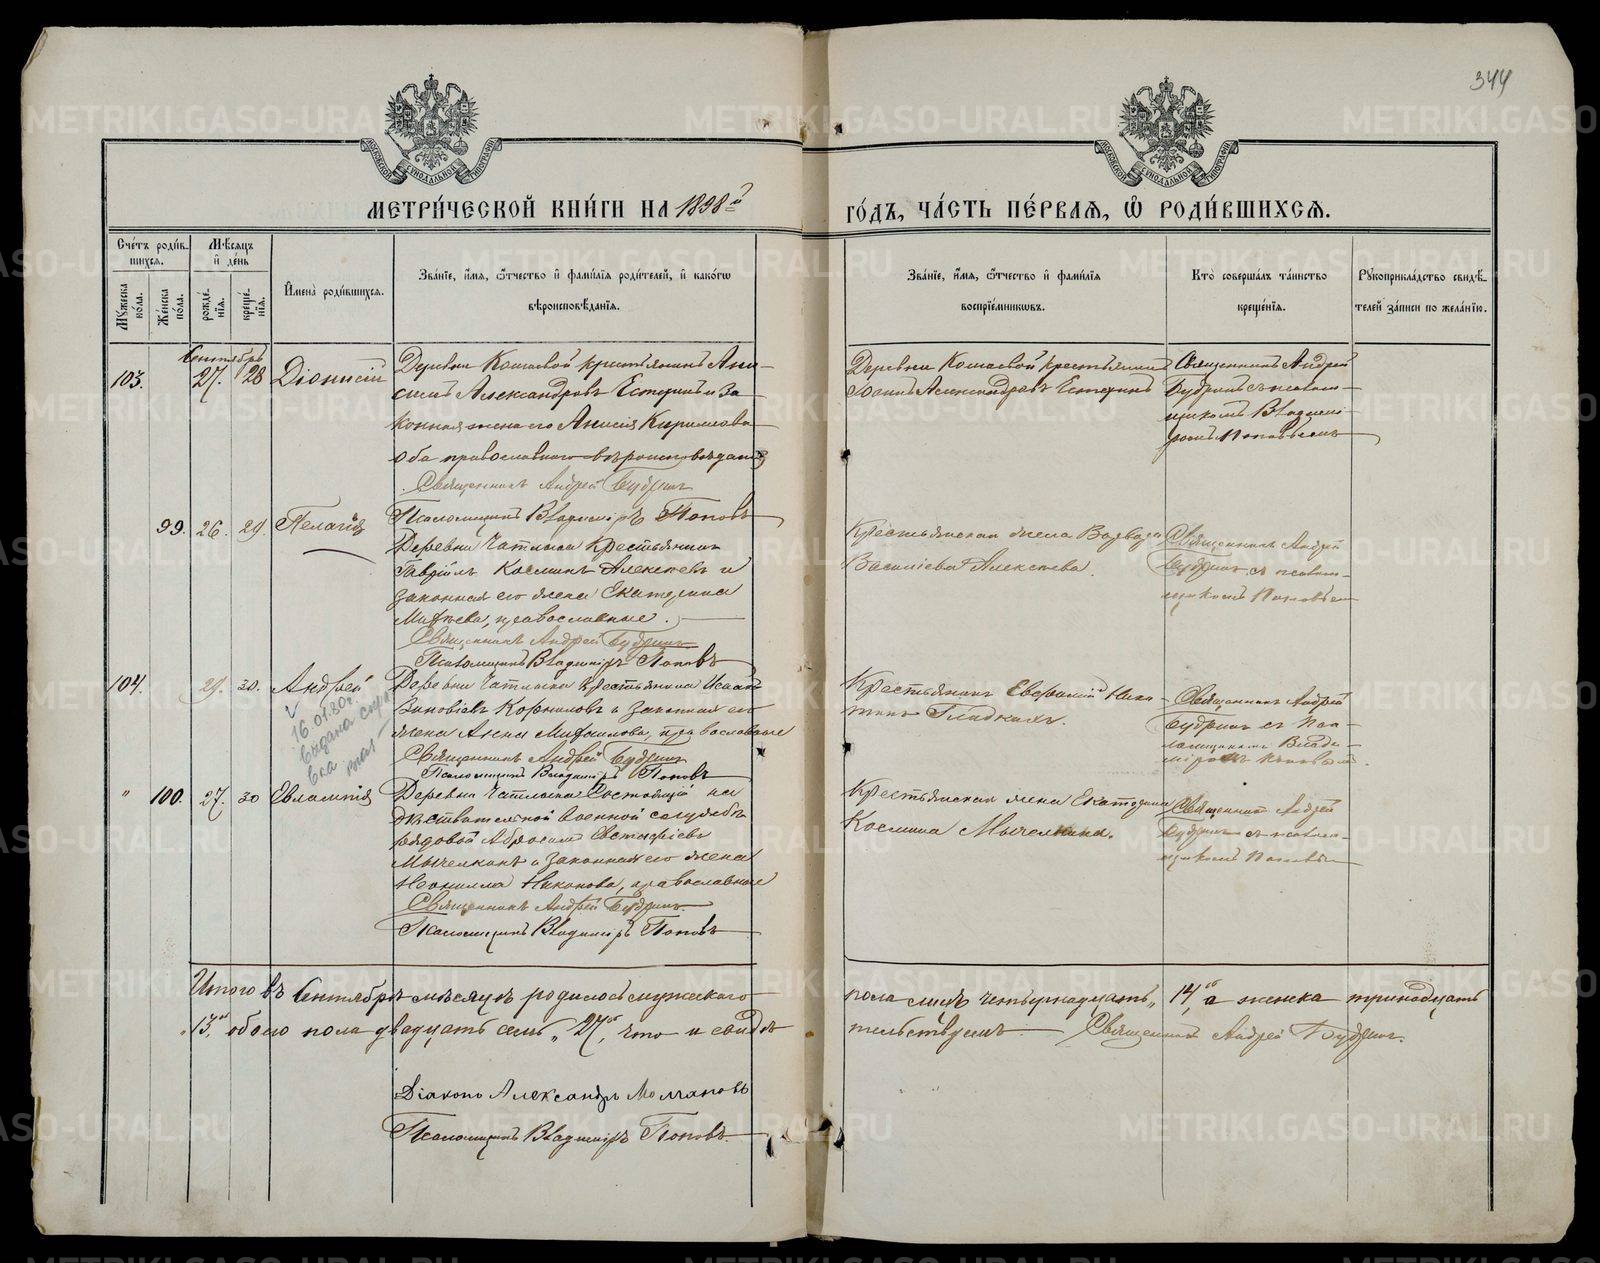 344
МЕТРИ́ЧЕСКОЙ КНИ́ГИ НА 1898й
ГО́ДЪ, ЧА́СТЬ ПЕ́РВАѦ, Ѡ РОДИ́ВШИХСѦ.
Сче́тъ роди́в-
шихсѧ.
Мѣ́сѧцъ
и де́нь
Мꙋ́жеска
по́ла.
Же́нска
по́ла.
рожде́-
нїѧ.
креще́-
нїѧ.
И҆мена̀ роди́вшихсѧ.
Зва́нїе, и҆́мѧ, ѻ҆́тчество и҆ фами́лїѧ роди́телей, и҆ како́гѡ
вѣроисповѣ́данїѧ.
Зва́нїе, и҆́мѧ, ѻ҆́тчество и҆ фами́лїѧ
воспрїе́мникѡвъ.
Кто̀ соверша́лъ та́инство
креще́нїѧ.
Рꙋкоприкла́дство свидѣ́-
телей за́писи по жела́нїю.
Сентябрь
103. 27. 28 Діонисій
Деревни Кошаевой крестьянинъ Ани-
симъ Александровъ Естехинъ и за
конная жена его Анисія Кириллова
оба православнаго вѣроисповѣданія
Священникъ Андрей Будринъ
Псаломщикъ Владиміръ Поповъ
Деревни Кошаевой крестьянинъ
Іоаннъ Александровъ Естехинъ
Священникъ Андрей
Будринъ съ псалом-
щикомъ Владими-
ромъ Поповымъ
99. 26. 29. Пелагія
Деревни Чатлыка Крестьянинъ
Гавріилъ Косминъ Алексѣевъ и
законная его жена Екатерина
православные.
Священникъ Андрей Будринъ
Псаломщикъ Владиміръ Поповъ
Крестьянская жена
Василіева Алексѣева.
Священникъ Андрей
Будринъ съ псалом-
щикомъ Поповымъ
104. 29. 30. Андрей
16.01.80г.
выдана справ
Деревни Чатлыка крестьянинъ Исаакъ
Зиновіевъ Корниловъ и законная его
жена Анна Михаилова, православные
Священникъ Андрей Будринъ
Псаломщикъ Владиміръ Поповъ
Крестьянинъ Евгеній Ника-
Гладкихъ.
Священникъ Андрей
Будринъ съ Пса-
ломщикомъ Влади-
міромъ Поповымъ.
" 100. 27. 30 Евлампія
Деревни Чатлыка Состоящій на
дѣйствительной военной службѣ
рядовой Абросимъ Евстафіевъ
Мычелкинъ и законная его жена
Неонилла Никонова, православные
Священникъ Андрей Будринъ.
Псаломщикъ Владиміръ Поповъ
Крестьянская жена Екатерина
Космина Мычелкина.
Священникъ Андрей
Будринъ съ псалом-
щикомъ Поповымъ
Итого въ Сентябрѣ мѣсяцѣ родилось мужескаго
пола лицъ четырнадцать „14", а женска тринадцать
„13", обоего пола двадцать семь „27", что и свидѣ
тельствуемъ Священникъ Андрей Будринъ.
Діаконъ Александръ
Псаломщикъ Владиміръ Поповъ